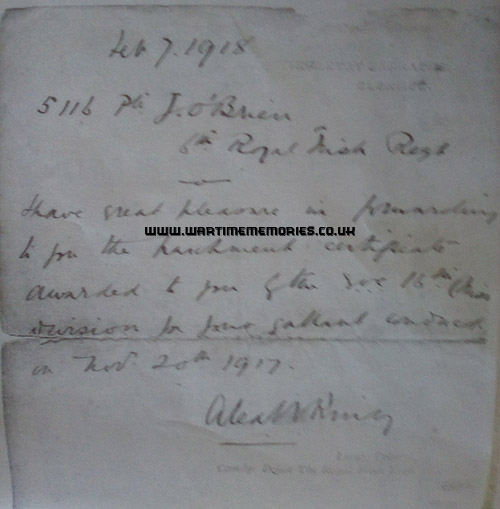 Feb 7. 1918
5116 Pte J. O'Brien
6th Royal Irish Regt
I have great pleasure in forwarding
WWW.WARTIMEMEMORIES.CO.UK
to you the parchment certificate
awarded to you by the G.O.C 16th (Irish
Division for your gallant conduct
on Nov. 20th 1917.